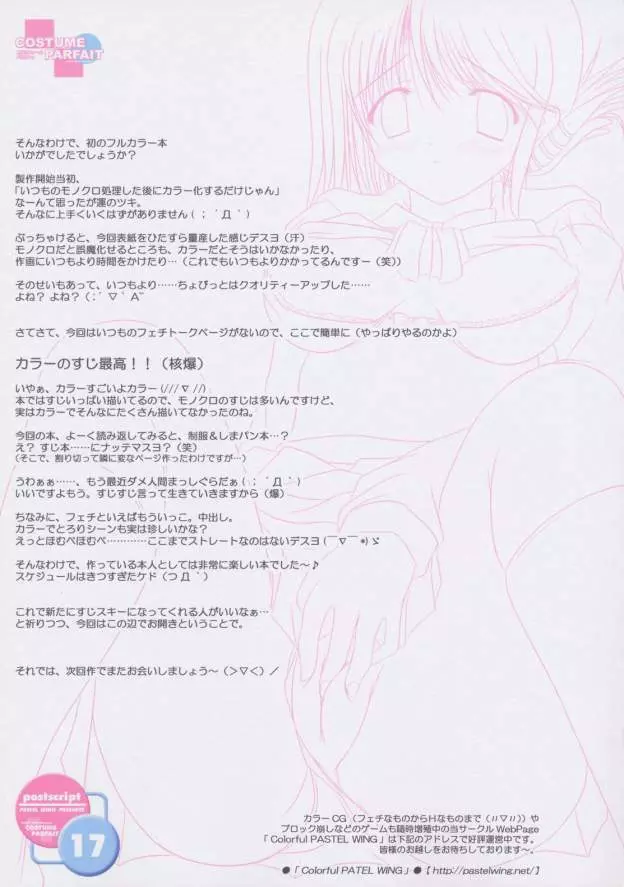 COSTUME
PARFAIT
そんなわけで、初のフルカラー本
いかがでしたでしょうか？
製作開始当初、
「いつものモノクロ処理した後にカラー化するだけじゃん」
なーんて思ったが運のツキ。
そんなに上手くいくはずがありません(；´Д｀)
ぶっちゃけると、今回表紙をひたすら量産した感じデスヨ（汗）
モノクロだと誤魔化せるところも、カラーだとそうはいかなかったり、
作画にいつもより時間をかけたり…（これでもいつもよりかかってるんですー（笑））
そのせいもあって、いつもより……ちょびっとはクオリティーアップした……
よね？ よね？（；´∇｀Ａ”
さてさて、今回はいつものフェチトークページがないので、ここで簡単に（やっぱりやるのかよ）
カラーのすじ最高！！（核爆）
いやぁ、カラーすごいよカラー(///∇//)
本ではすじいっぱい描いてるので、モノクロのすじは多いんですけど、
実はカラーでそんなにたくさん描いてなかったのね。
今回の本、よーく読み返してみると、制服＆しまパン本…？
え？ すじ本……にナッテマスヨ？（笑）
（そこで、割り切って隣に変なページ作ったわけですが…）
うわぁぁ……、もう最近ダメ人間まっしぐらだぁ(；´Д｀)
いいですよもう。すじすじ言って生きていきますから（爆）
ちなみに、フェチといえばもういっこ。中出し。
カラーでとろりシーンも実は珍しいかな？
えっとほむぺほむぺ…………ここまでストレートなのはないデスヨ(￣∇￣*)ゞ
そんなわけで、作っている本人としては非常に楽しい本でした～♪
スケジュールはきつすぎたケド（つД｀）
これで新たにすじスキーになってくれる人がいいなぁ…
と祈りつつ、今回はこの辺でお開きということで。
それでは、次回作でまたお会いしましょう～（＞∇＜）／
postscript
PASTEL WING PRESENTS
COSTUME
PARFAIT
17
カラーCG（フェチなものからHなものまで（〃∇〃））や
ブロック崩しなどのゲームも随時増殖中の当サークルWebPage
「Colorful PASTEL WING」は下記のアドレスで好評運営中です。
皆様のお越しをお待ちしております～。
●「Colorful PATEL WING」●【http://pastelwing.net/】